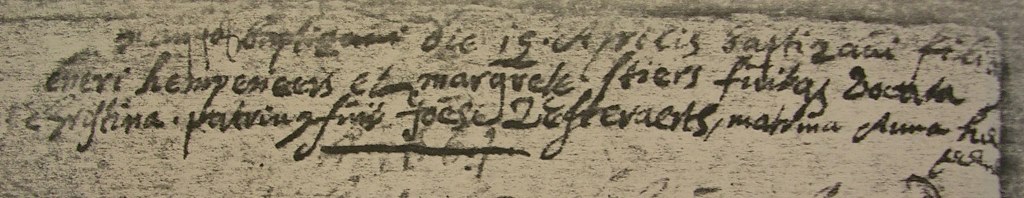 baptizavi die 19 Aprilis baptizavi filia
eneri hempeneers et margrete stiers fuitq vocata
Christina . patrinus fuit Joēs Lesteraerts, matrina Anna